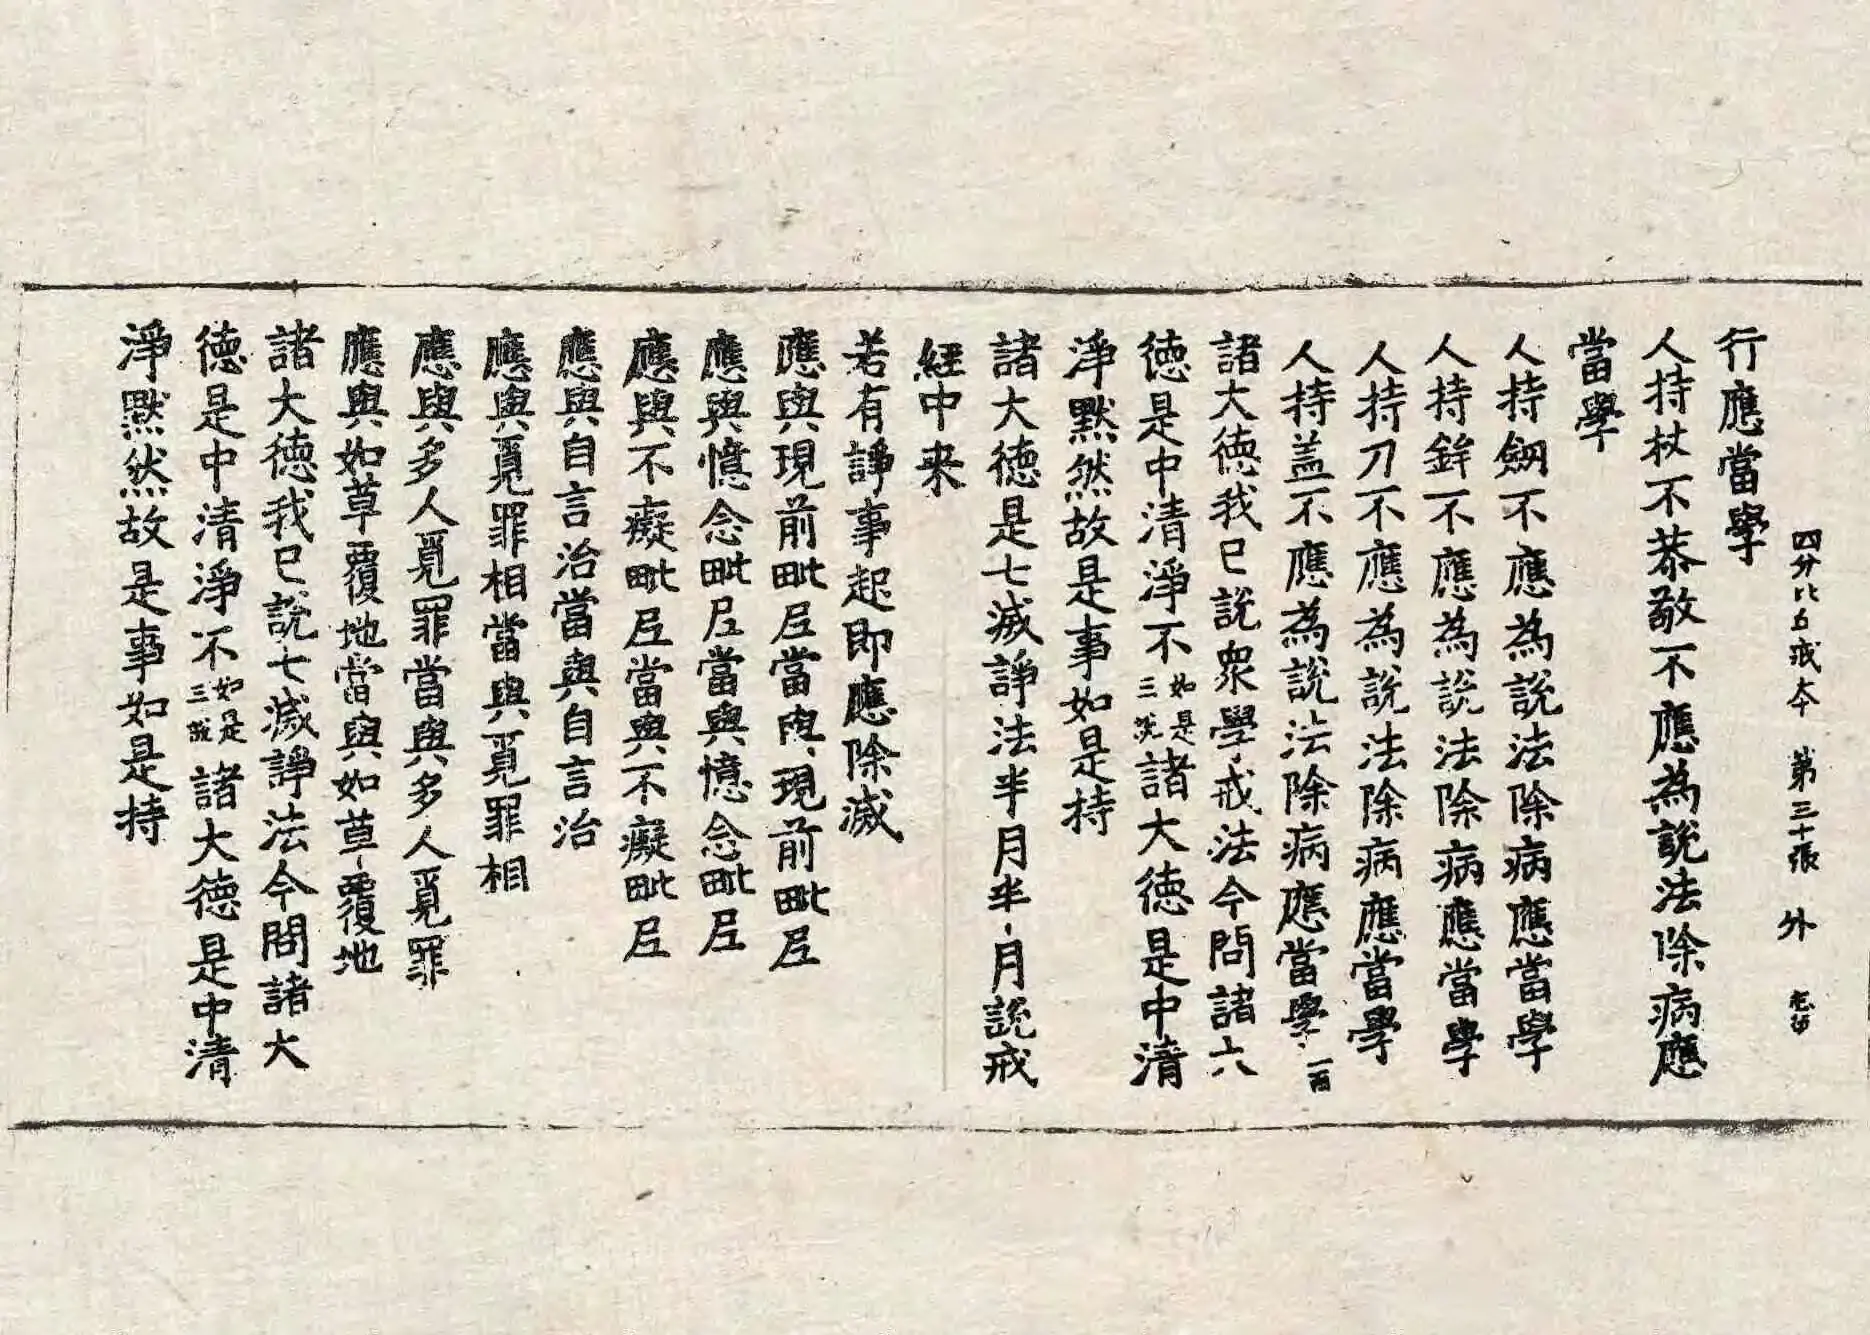 四分比丘戒本 第三十張 外
行應當學
人持杖不恭敬不應為說法除病應
當學
人持劒不應為說法除病應當學
人持鉾不應為說法除病應當學
人持刀不應為說法除病應當學
人持盖不應為說法除病應當學 一百
諸大德我已說眾學戒法今問諸大
德是中清淨不如是三說諸大德是中清
淨默然故是事如是持
諸大德是七滅諍法半月半月說戒
經中来
若有諍事起即應除滅
應與現前毗尼當與現前毗尼
應與憶念毗尼當與憶念毗尼
應與不癡毗尼當與不癡毗尼
應與自言治當與自言治
應與覓罪相當與覓罪相
應與多人覓罪當與多人覓罪
應與如草覆地當與如草覆地
諸大德我已說七滅諍法今問諸大
德是中清淨不如是三說諸大德是中清
淨默然故是事如是持